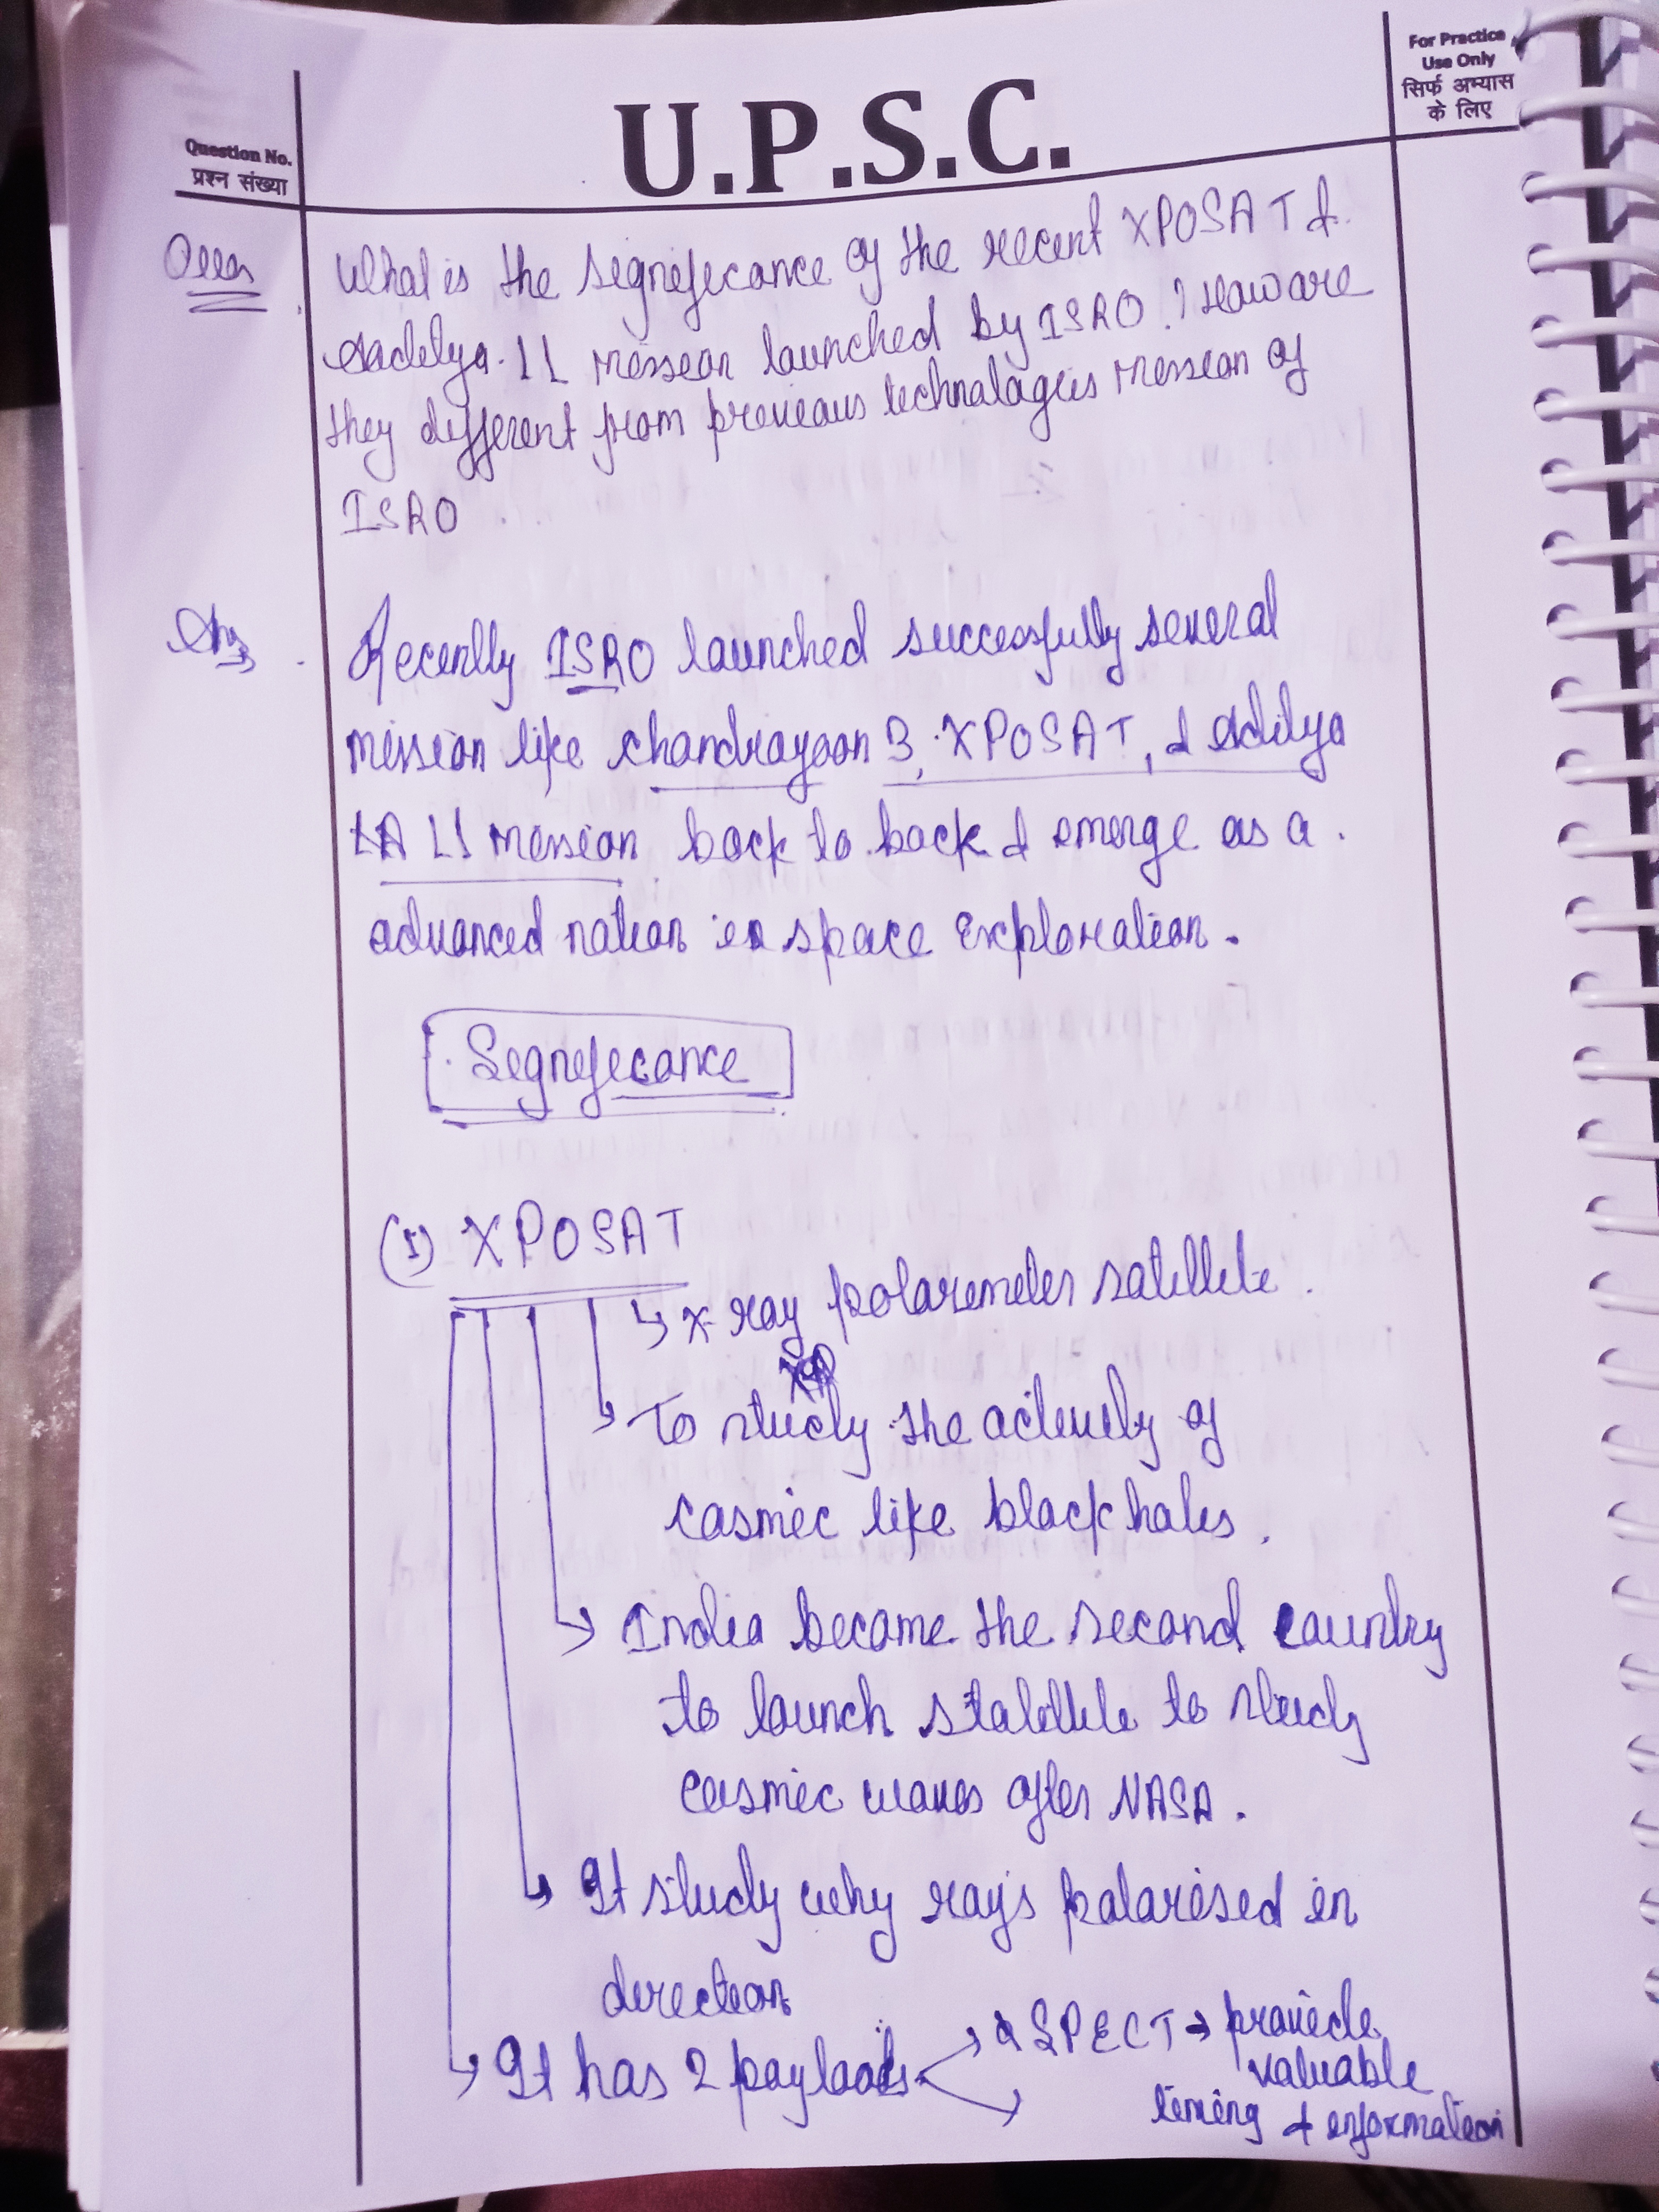 For Practice
Use Only
सिर्फ अभ्यास
के लिए
Question No.
प्रश्न संख्या
U.P.S.C.
What is the significance of the recent XPOSAT &
Aaditya L1 mission launched by ISRO.? How are
they different from previous technologies mission of
ISRO
Ans
Recently ISRO launched successfully several
mission like chandrayaan 3, XPOSAT, & Aditya
L1 mission back to back & emerge as a
advanced nation in space exploration.
Significance
(1) XPOSAT
X-ray polarimeter satellite.
To study the activity of
cosmic like black holes.
India became the second country
to launch statellite to study
cosmic waves after NASA.
It study why rays polarised in
direction
It has 2 payloads
SPECT → provide
valuable
timing & information